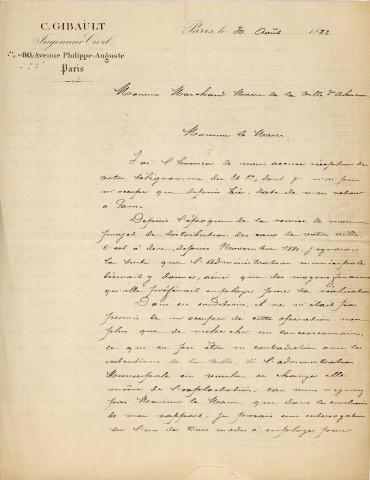 C. GIBAULT
Ingénieur Civil
80, Avenue Philippe-Auguste
Paris
Paris, le 30 Août 1882
Monsieur Marchand Maire de la Ville d'
Monsieur le Maire,
J'ai l'honneur de vous accuser réception de
votre télégramme du 26 Ct, dont je n'ai pu
m'occuper que depuis hier, date de mon retour
à Paris.
Depuis l'époque de la remise de mon
projet de distribution des eaux de votre ville
c'est à dire depuis Novembre 1881 j'ignorais
la suite que l'Administration municipale
désirait y donner, ainsi que des moyens financiers
qu'elle préférait employer pour sa réalisation
Dans ces conditions, il ne m'était pas
permis de m'occuper de cette opération non
plus que de rechercher un concessionnaire,
ce que eu pu être en contradiction avec les
intentions de la Ville, si l'administration
Municipale eu voulu se charger elle
même de l'exploitation; car vous n'ignorez
pas Monsieur le Maire, que dans les conclusions
de mon rapport, je posais une interrogation
sur l'un des trois modes à employer pour